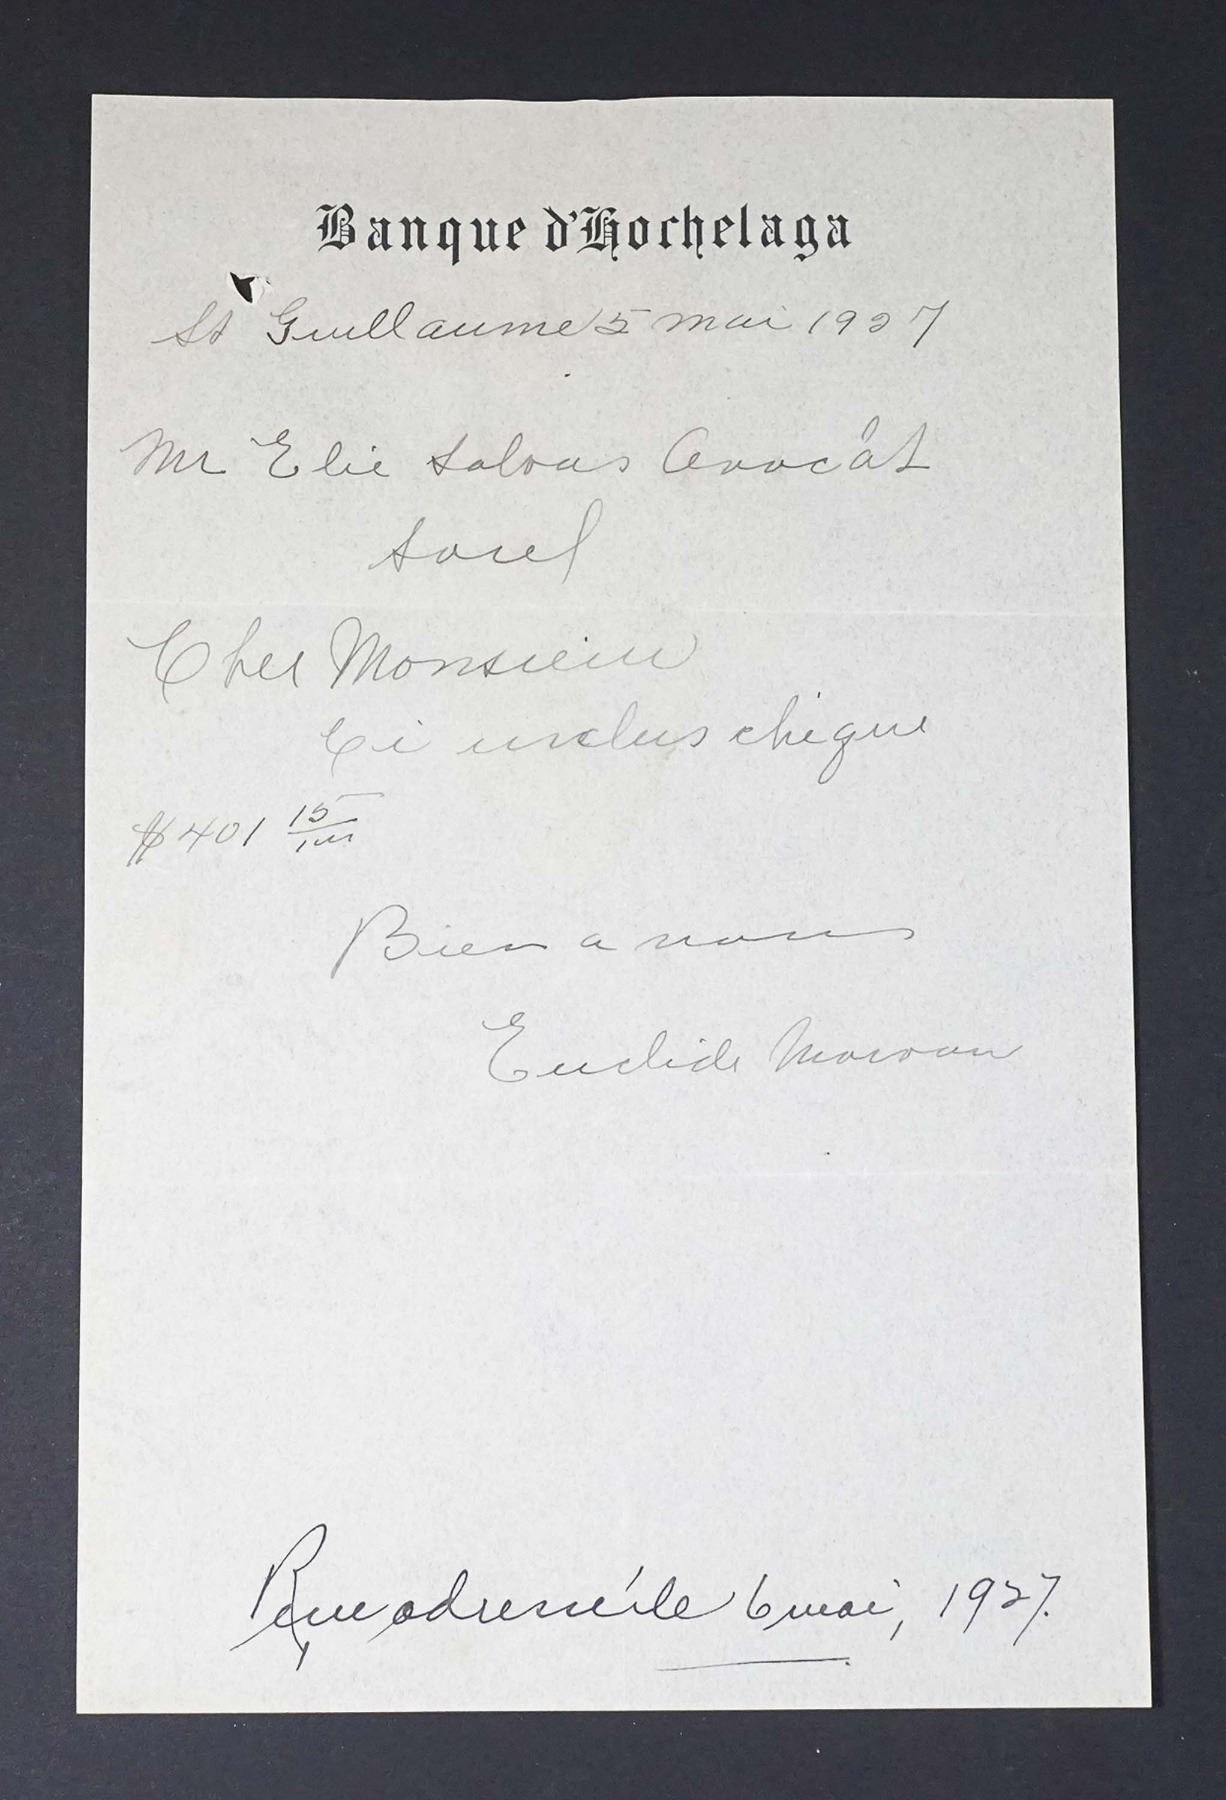 Banque d'Hochelaga
St Guillaume 5 mai 1927
Mr Elie Salvas Avocat
Sorel
Cher Monsieur
Ci inclus chèque
$401 15/100
Bien a vous
Euclide
Reçue adressé le 6 mai, 1927.